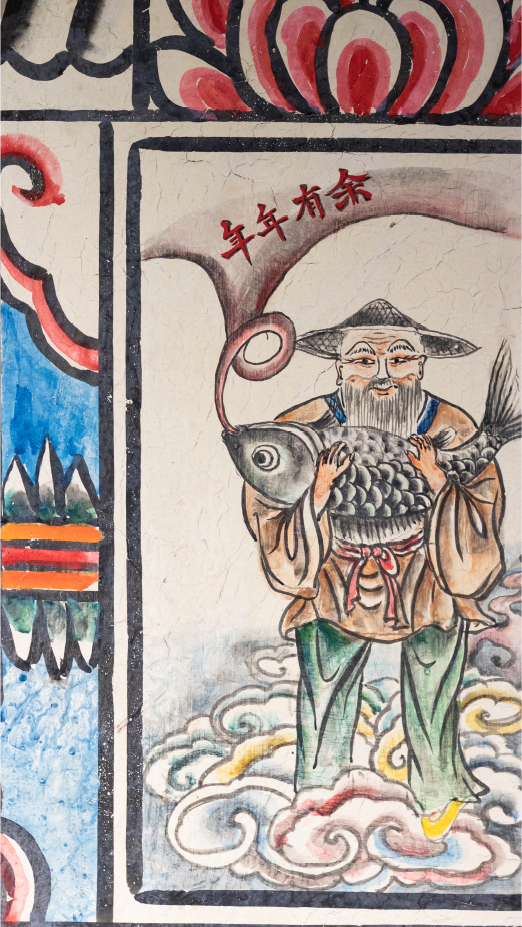 年年有余